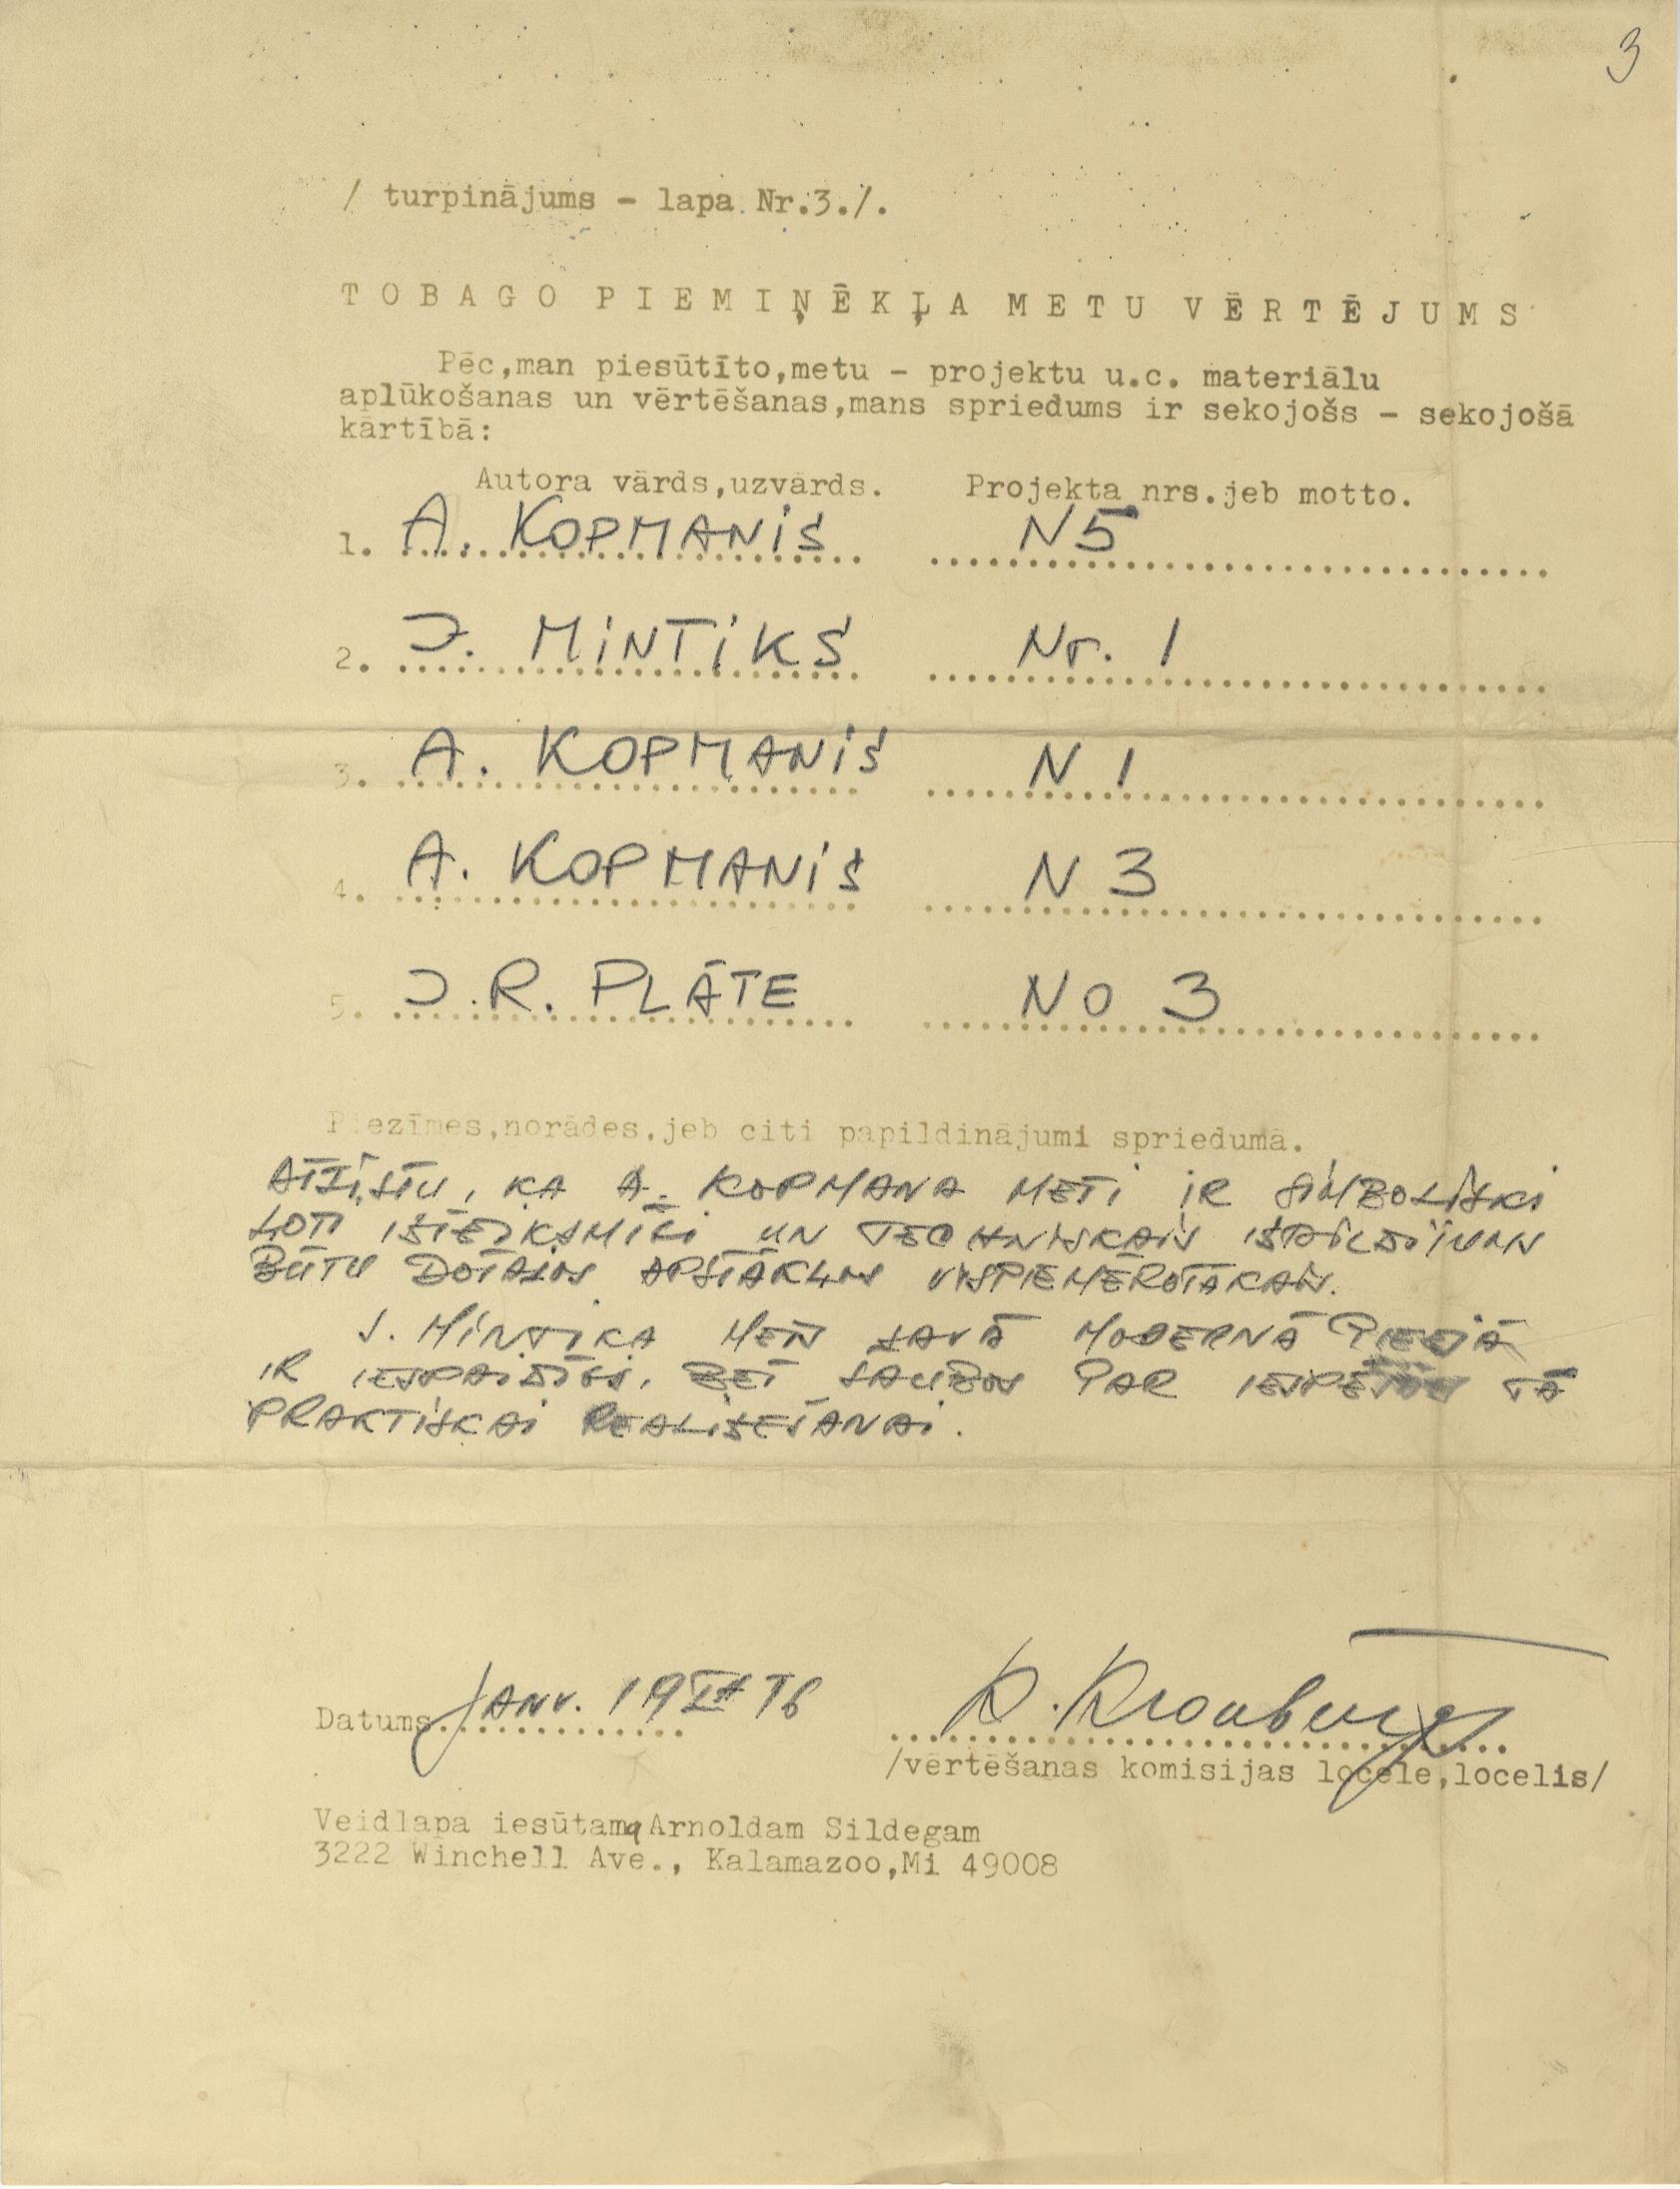 3
/ turpinājums - lapa Nr.3./.
TOBAGO PIEMIŅĒKĻA METU VĒRTĒJUMS
Pēc,man piesūtīto,metu - projektu u.c. materiālu
aplūkošanas un vērtēšanas,mans spriedums ir sekojošs - sekojošā
kārtībā:
Autora vārds,uzvārds. Projekta nrs.jeb motto.
1. A. KOPMANIS N5
2. J. MINTIKS Nr. 1
3. A. KOPMANIS N 1
4. A. KOPMANIS N 3
5. J.R. PLĀTE No 3
Piezīmes,norādes,jeb citi papildinājumi spriedumā.
ATZĪSTU, KA A. KOPMANA METI IR SIMBOLISKI
ĻOTI IZTEIKSMĪGI UN TECHNISKAIS IZPILDĪJUMS
BŪTU DOTAJOS APSTĀKĻOS VISPIEMĒROTĀKAIS.
J. MINTIKA METS SAVĀ MODERNĀ PIEEJĀ
IR IESPAIDĪGS, BET ŠAUBOS PAR TĀ
PRAKTISKAI REALIZĒŠANAI.
Datums JANV. 19 76 K. Kronbergs
/vērtēšanas komisijas locele,locelis/
Veidlapa iesūtama Arnoldam Sildegam
3222 Winchell Ave., Kalamazoo,Mi 49008